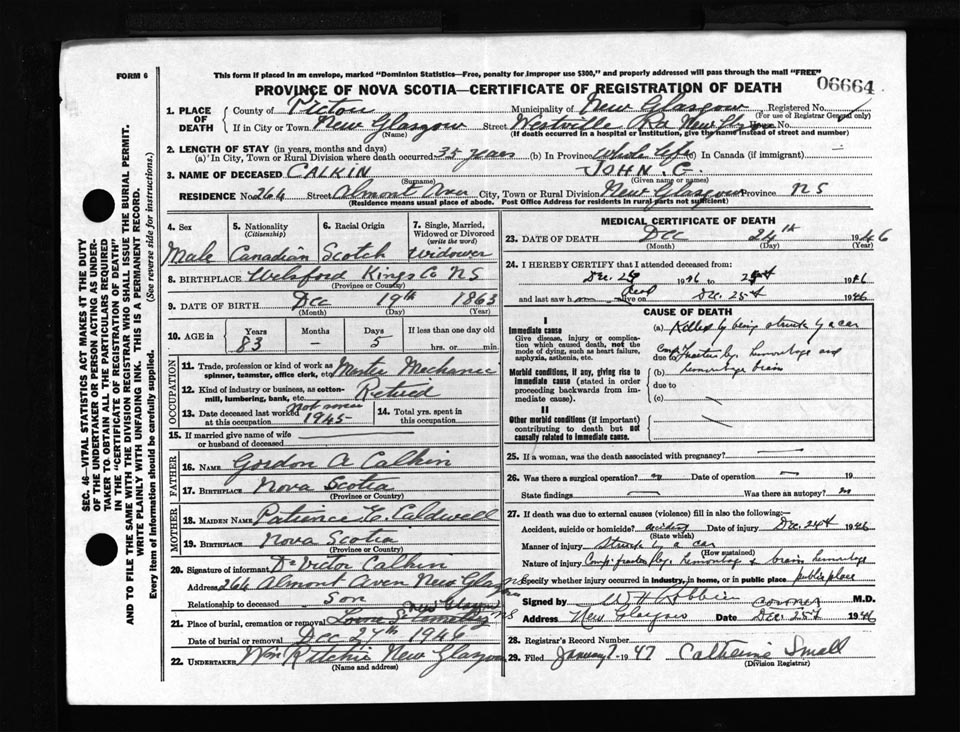 FORM 6
This form if placed in an envelope, marked "Dominion Statistics—Free, penalty for improper use $300," and properly addressed will pass through the mail "FREE"
PROVINCE OF NOVA SCOTIA—CERTIFICATE OF REGISTRATION OF DEATH
06664
1. PLACE OF DEATH
County of Pictou Municipality of New Glasgow Registered No.
(For use of Registrar General only)
If in City or Town New Glasgow Street Westville Rd New Glasgow House No.
(Name) (If death occurred in a hospital or institution, give the name instead of street and number)
2. LENGTH OF STAY (in years, months and days)
(a) In City, Town or Rural Division where death occurred 35 years (b) In Province Whole life (c) In Canada (if immigrant) —
3. NAME OF DECEASED CALKIN JOHN. G.
(Surname) (Given name or names)
RESIDENCE No. 264 Street Almont Aven City, Town or Rural Division New Glasgow Province NS
(Residence means usual place of abode. Post Office Address for residents in rural parts not sufficient)
4. Sex 5. Nationality (Citizenship) 6. Racial Origin 7. Single, Married, Widowed or Divorced (write the word)
Male Canadian Scotch Widower
8. BIRTHPLACE Welsford Kings Co NS
(Province or Country)
9. DATE OF BIRTH Dec 19th 1863
(Month) (Day) (Year)
10. AGE in Years Months Days If less than one day old
83 — 5 hrs. or min.
OCCUPATION
11. Trade, profession or kind of work as spinner, teamster, office clerk, etc. Master Mechanic
12. Kind of industry or business, as cotton-mill, lumbering, bank, etc. Retired
13. Date deceased last worked at this occupation 1945 14. Total yrs. spent in this occupation
15. If married give name of wife or husband of deceased —
FATHER
16. NAME Gordon A Calkin
17. BIRTHPLACE Nova Scotia
(Province or Country)
MOTHER
18. MAIDEN NAME Patience E. Caldwell
19. BIRTHPLACE Nova Scotia
(Province or Country)
20. Signature of informant Dr Victor Calkin
Address 264 Almont Aven New Glasgow NS
Relationship to deceased Son
21. Place of burial, cremation or removal New Glasgow NS
Date of burial or removal Dec 27th 1946
22. UNDERTAKER Wm Ritchie New Glasgow
(Name and address)
MEDICAL CERTIFICATE OF DEATH
23. DATE OF DEATH Dec 24th 1946
(Month) (Day) (Year)
24. I HEREBY CERTIFY that I attended deceased from:
Dec. 1946 to 1946
and last saw h alive on Dec. 25th 1946
CAUSE OF DEATH
I
Immediate cause
Give disease, injury or complication which caused death, not the mode of dying, such as heart failure, asphyxia, asthenia, etc.
(a) Killed by being struck by a car
due to Comp. Fracture leg. hemorrhage and
Morbid conditions, if any, giving rise to immediate cause (stated in order proceeding backwards from immediate cause).
(b) hemorrhage brain
due to
(c)
II
Other morbid conditions (if important) contributing to death but not causally related to immediate cause.
25. If a woman, was the death associated with pregnancy? —
26. Was there a surgical operation? no Date of operation — 19
State findings — Was there an autopsy? no
27. If death was due to external causes (violence) fill in also the following:—
Accident, suicide or homicide? accident Date of injury Dec. 24th 1946
(State which)
Manner of injury Struck by a car
(How sustained)
Nature of injury Comp. fracture leg. hemorrhage & brain hemorrhage
Specify whether injury occurred in industry, in home, or in public place public place
Signed by coroner M.D.
Address New Glasgow Date Dec 25th 1946
28. Registrar's Record Number
29. Filed January 7 1947 Catherine Small
(Division Registrar)
SEC. 46—VITAL STATISTICS ACT MAKES IT THE DUTY
OF THE UNDERTAKER OR PERSON ACTING AS UNDER-
TAKER TO OBTAIN ALL THE PARTICULARS REQUIRED
IN THE "CERTIFICATE OF REGISTRATION OF DEATH"
AND TO FILE THE SAME WITH THE DIVISION REGISTRAR WHO SHALL ISSUE THE BURIAL PERMIT.
WRITE PLAINLY WITH UNFADING INK. THIS IS A PERMANENT RECORD.
Every item of information should be carefully supplied. (See reverse side for instructions.)